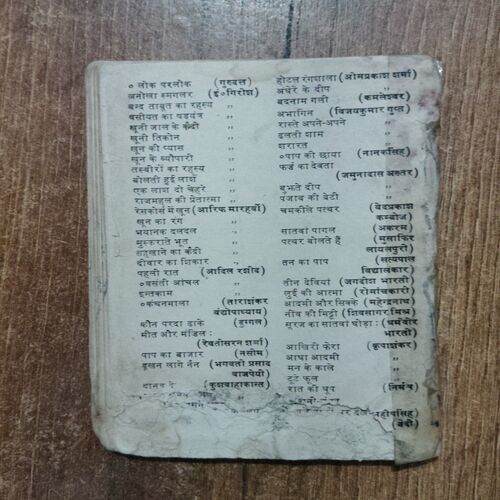 ० लोक परलोक (गुरुदत्त)
अनोखा स्मगलर (इं० गिरीश)
बन्द ताबूत का रहस्य ,,
वसीयत का षडयंत्र ,,
खूनी जाल के कैदी ,,
खूनी तिकोन ,,
खून की प्यास ,,
खून के ब्यौपारी ,,
तस्वीरों का रहस्य ,,
बोलती हुई लाशें ,,
एक लाश दो चेहरे ,,
राजमहल की प्रेतात्मा ,,
रेसकोर्स में खून (आरिफ मारहर्वी)
खून का रंग ,,
भयानक दलदल ,,
मुस्कराते भूत ,,
तहखाने का कैदी ,,
दीवार का शिकार ,,
पहली रात (आदिल रशीद)
०बसंती आंचल ,,
इन्तकाम ,,
०कंचनमाला (ताराशंकर
बंद्योपाध्याय)
कौन परदा ढाके (डुग्गल)
मौत और मंजिल:
(रेवतीसरन शर्मा)
पाप का बाजार (नसीम)
डूखन लागे नैन (भगवती प्रसाद
बाजपेयी)
दानव दे (कुशवाहाकान्त)
होटल रंगशाला (ओमप्रकाश शर्मा)
अंधेरे के दीप ,,
बदनाम गली (कमलेश्वर)
अभागिन (विजयकुमार गुप्त)
रास्ते अपने-अपने ,,
ढलती शाम ,,
शरारत ,,
०पाप की छाया (नानकसिंह)
फर्ज का देवता
(जमुनादास अख्तर)
बुझते दीप ,,
पंजाब की बेटी ,,
चमकीले पत्थर (वेदप्रकाश
कम्बोज)
सातवां पागल (अकरम)
पत्थर बोलते हैं (मुसाफिर
लायलपुरी)
तन का पाप (सत्यपाल
विद्यालंकार)
तीन देवियां (जगदीश भारती)
लुई की आत्मा (रोमांचकारी)
आदमी और सिक्के (महेन्द्रनाथ)
नींव की मिट्टी (शिवसागर मिश्र)
सूरज का सातवां घोड़ा: (धर्मवीर
भारती)
आखिरी फेरा (कृपाशंकर)
आधा आदमी ,,
मन के काले ,,
टूटे फूल ,,
रात की धूप (निर्मम)
(बेदी)